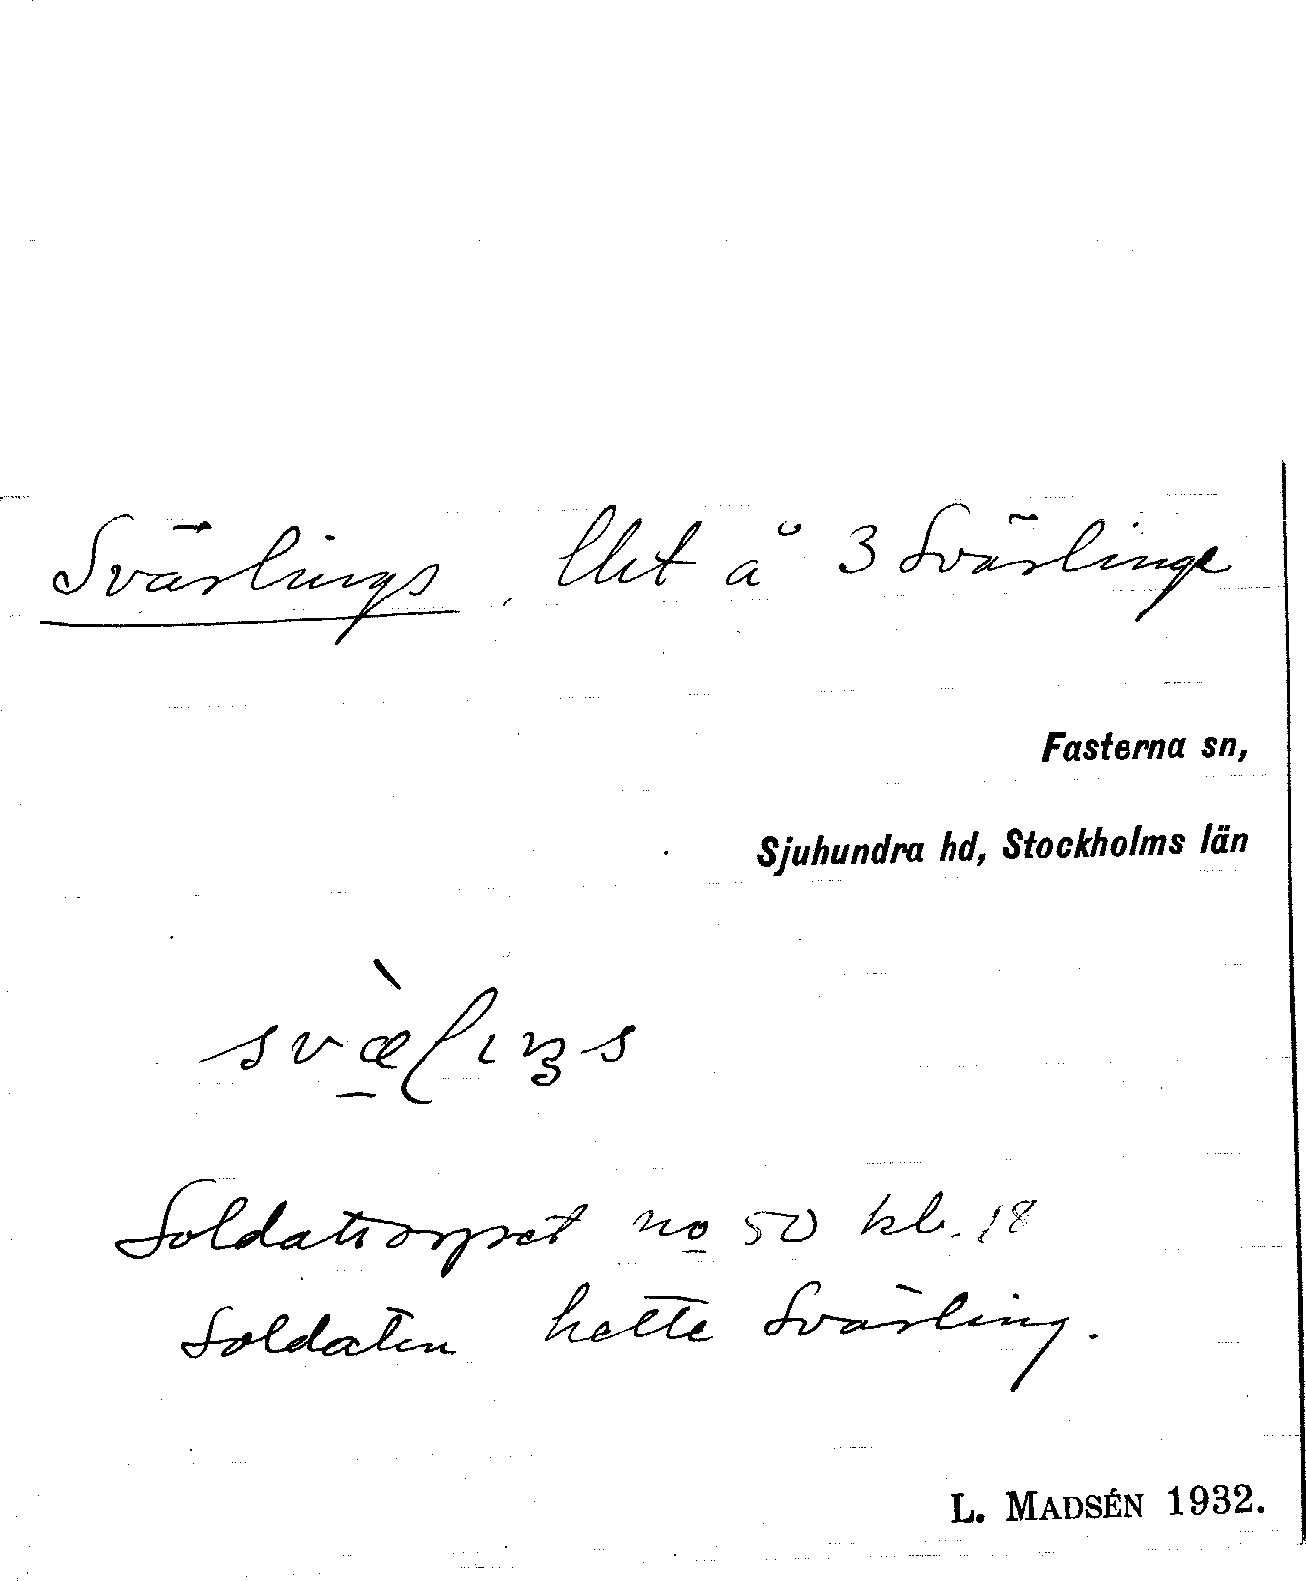 Svärlings, lht å 3 Svärlinge
Fasterna sn,
Sjuhundra hd, Stockholms län
Soldattorpet no 50 kb. 18
Soldaten hette Svärling.
L. MADSÉN 1932.